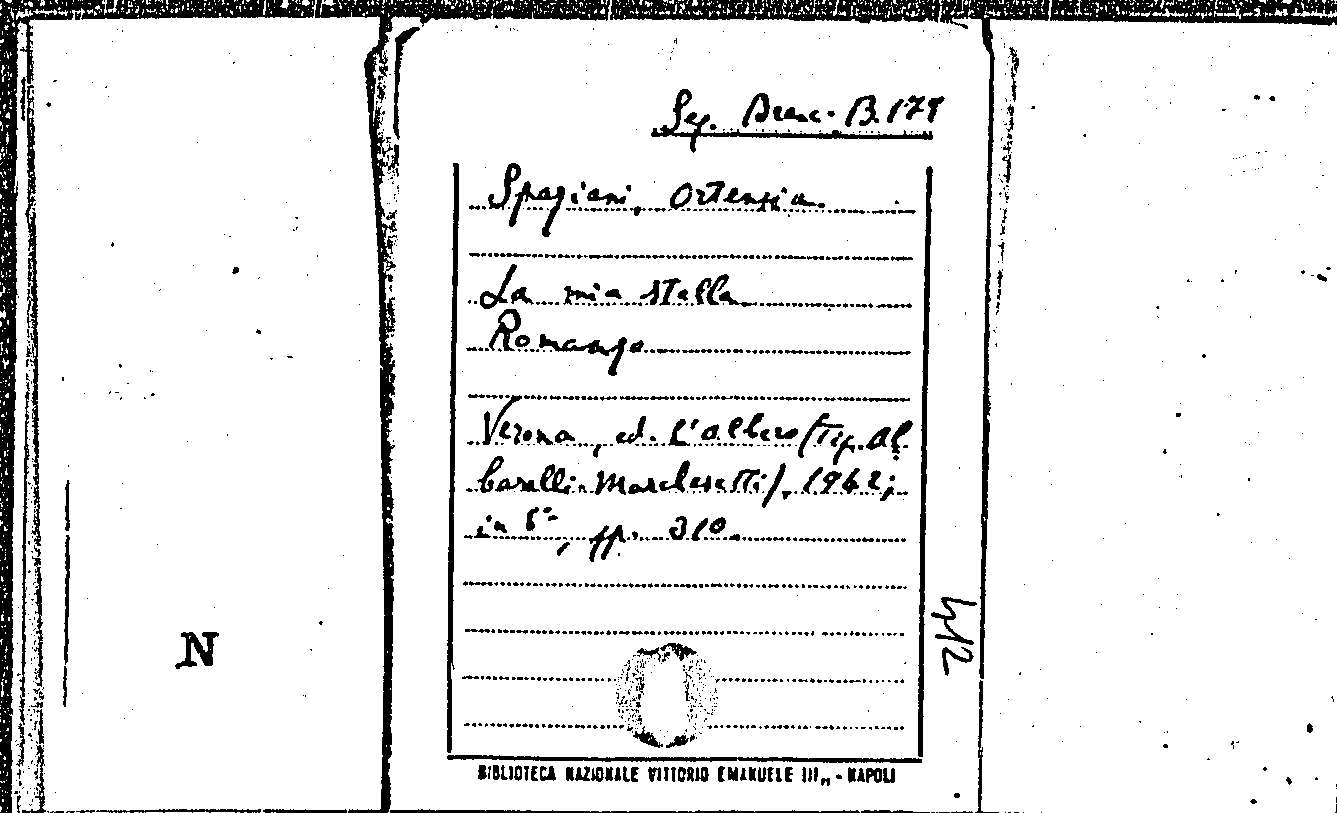 Sez. Branc. B. 179
Spaziani, Ortensia.
La mia stella.
Romanzo.
Verona, ed. L'albero (Tip. Al
barelli-Marchesetti), 1942;
in 8º, pp. 310.
412
N
BIBLIOTECA NAZIONALE VITTORIO EMANUELE III„ - NAPOLI